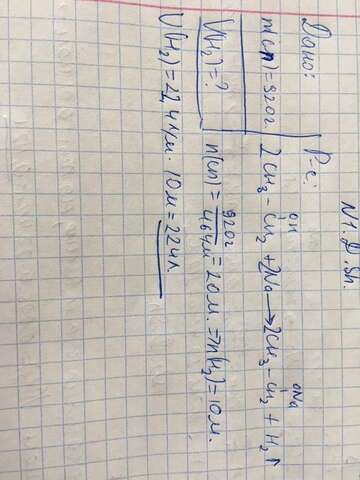 N1. D. Sh.
Дано:
m(сп)=920г
V(H₂)=?
Р-е:
OH ONa
2CH₃-CH₂ + 2Na → 2CH₃-CH₂ + H₂↑
n(сп) = 920г / 46г/м = 20м. => n(H₂) = 10м.
V(H₂) = 22,4л/м · 10м = 224л